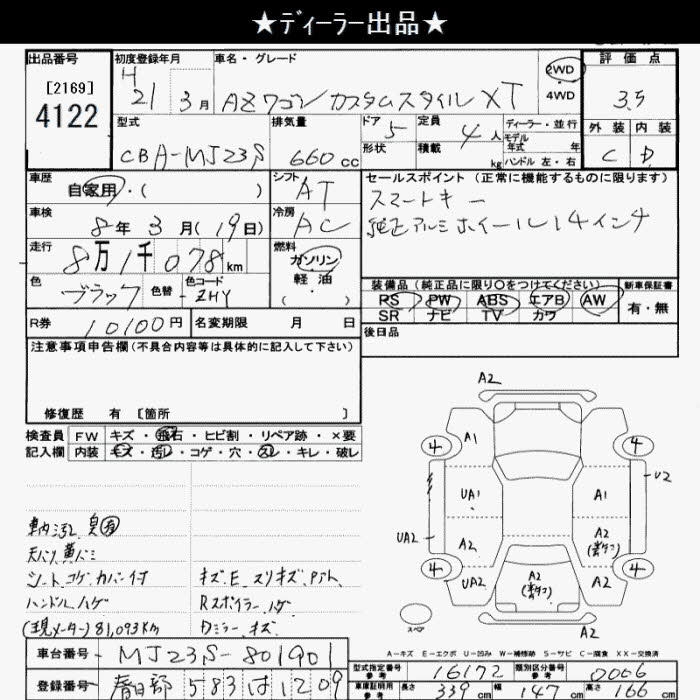 ★ディーラー出品★
出品番号
[2169]
4122
初度登録年月
H
21 3月
車名・グレード
AZワゴン カスタムスタイル XT
2WD
4WD
評価点
3.5
外装 内装
C D
型式
CBA-MJ23S
排気量
660cc
ドア 5
形状
定員 4人
積載 kg
ディーラー・並行
モデル年式 年
ハンドル 左・右
車歴
自家用・( )
シフト
AT
車検
8年 3月(19日)
冷房
AC
走行
8万1千078km
燃料
ガソリン
軽油
( )
色
ブラック
色替
色コード
ZHY
R券
10100円
名変期限 月 日
セールスポイント (正常に機能するものに限ります)
スマートキー
純正アルミホイール14インチ
装備品 (純正品に限り○をつけてください)
PS PW ABS エアB AW
SR ナビ TV カワ
新車保証書
有・無
後日品
注意事項申告欄(不具合内容等は具体的に記入して下さい)
修復歴 有 [箇所 ]
検査員記入欄
FW キズ・飛石・ヒビ割・リペア跡・×要
内装 キズ・汚レ・コゲ・穴・スレ・キレ・破レ
車内汚レ 臭有
天バリ黄バミ
シート コゲ.カバー付
ハンドルハゲ
(現メーター) 81,093Km
キズ.E スリキズ.Pアト
Rスポイラーハゲ
Dミラーキズ
A2
4 A1 4
UA1 A1 U2
UA2 A2 A2
4 UA2 A2 A2 4
A2
スペア
A-キズ E-エクボ U-凹み W-補修跡 S-サビ C-腐食 XX-交換済
車台番号
MJ23S-801901
登録番号
春日部 583 は 1209
型式指定番号 参考
16172
類別区分番号 参考
0006
車検証明用 参考
長さ 339cm 幅 147cm 高さ 166cm